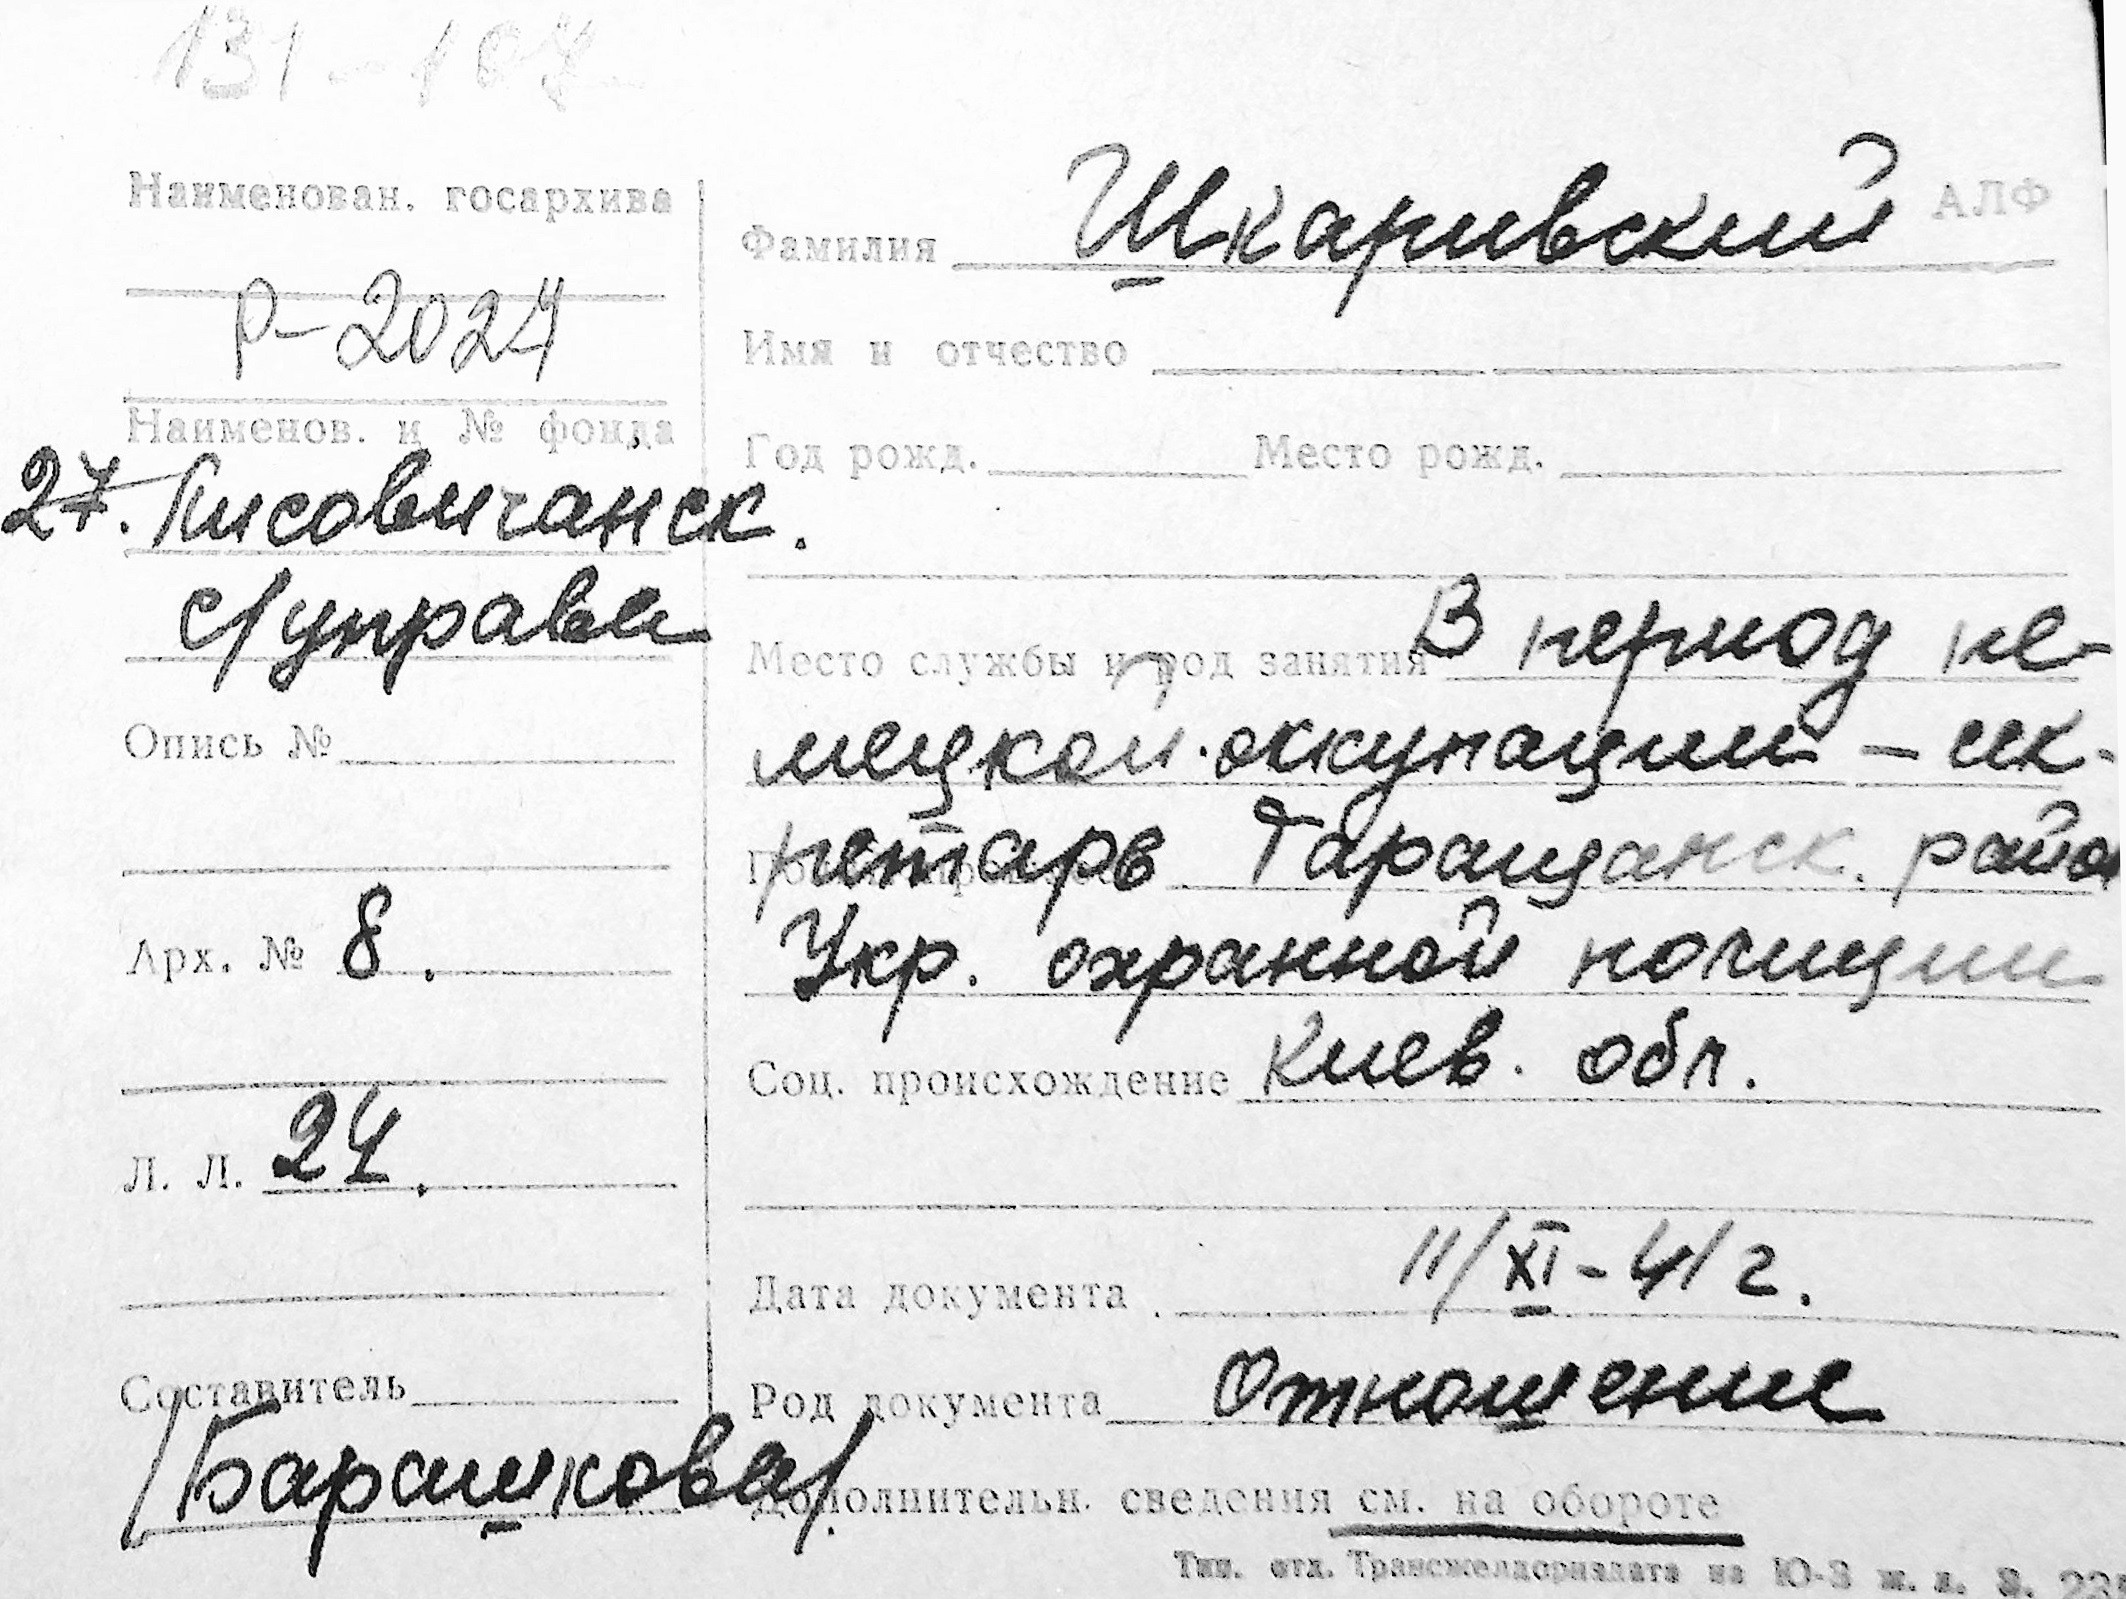 131-107
Наименован. госархива
Р-2024
Наименов. и № фонда
27. Лисовичанск.
с/управа
Опись №
Арх. № 8.
Л. Л. 24.
Составитель
/Барашкова/.
АЛФ
Фамилия Шкаривский
Имя и отчество
Год рожд. Место рожд.
Место службы и род занятия В период не-
мецкой оккупации - сек-
ретарь Таращанск. район
Укр. охранной полиции
Соц. происхождение Киев. обл.
Дата документа 11/XI-41 г.
Род документа Отношение
Дополнительн. сведения см. на обороте
Тип. отд. Трансжелдориздата на Ю-З ж. д. З.